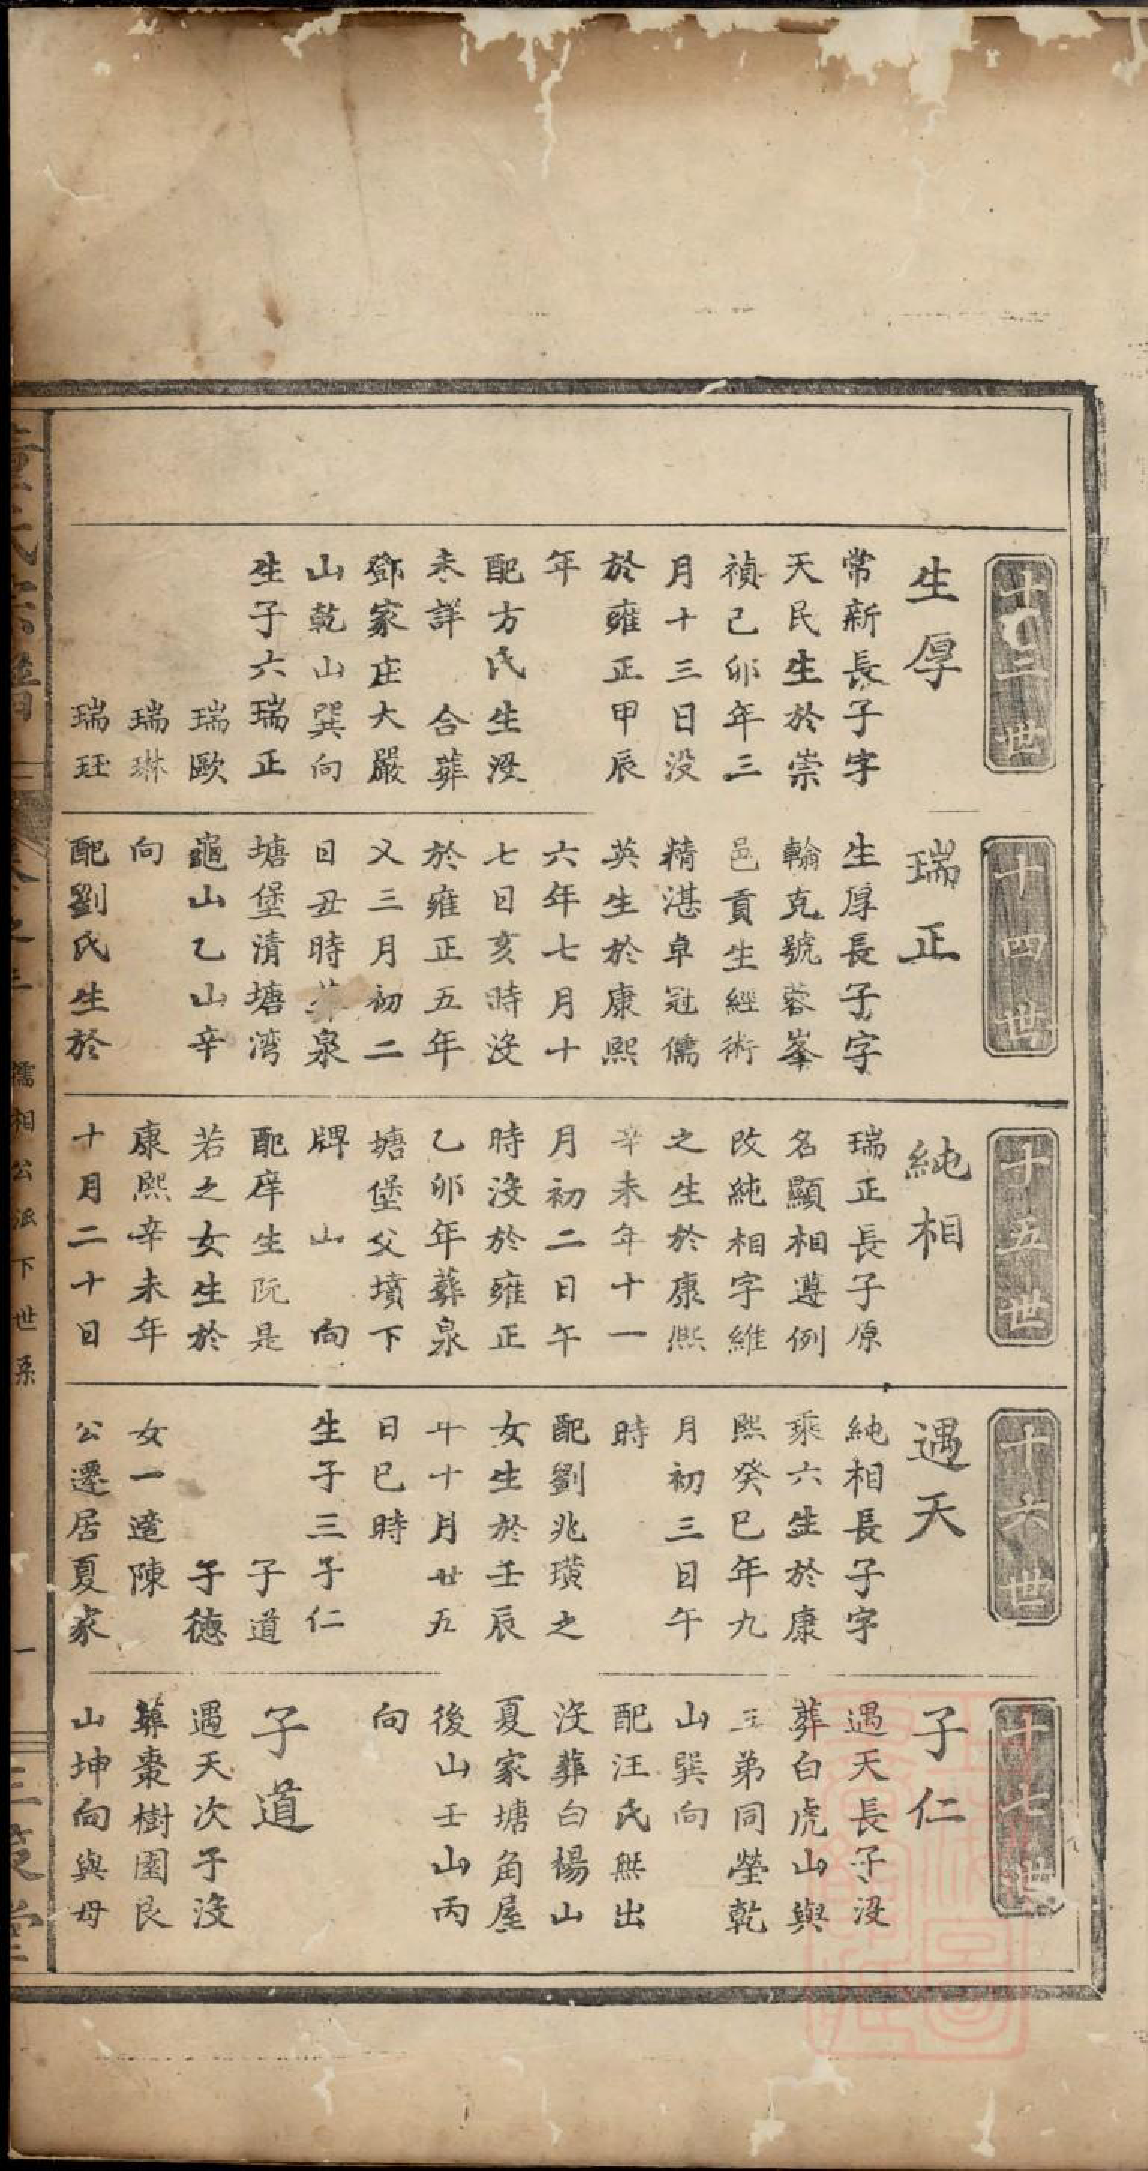 十三世
生厚
常新長子字
天民生於崇
禎己卯年三
月十三日没
於雍正甲辰
年
配方氏生殁
未詳 合葬
鄧家庄大嚴
山乾山巽向
生子六瑞正
瑞歐
瑞琳
瑞珏
十四世
瑞正
生厚長子字
輪克號蓉峯
邑貢生經術
精湛卓冠儒
英生於康熙
六年七月十
七日亥時没
於雍正五年
又三月初二
日丑時葬泉
塘堡清塘湾
龜山乙山辛
向
配劉氏生於
十五世
純相
瑞正長子原
名顯相遵例
改純相字維
之生於康熙
辛未年十一
月初二日午
時没於雍正
乙卯年葬泉
塘堡父墳下
牌 山 向
配庠生阮是
若之女生於
康熙辛未年
十月二十日
十六世
遇天
純相長子字
乘六生於康
熙癸巳年九
月初三日午
時
配劉兆璜之
女生於壬辰
年十月廿五
日巳時
生子三子仁
子道
子德
女一適陳
公遷居夏家
十七世
子仁
遇天長子没
葬白虎山與
三弟同塋乾
山巽向
配汪氏無出
没葬白楊山
夏家塘角屋
後山壬山丙
向
子道
遇天次子没
葬棗樹園艮
山坤向與母
儒相公派下世系
一